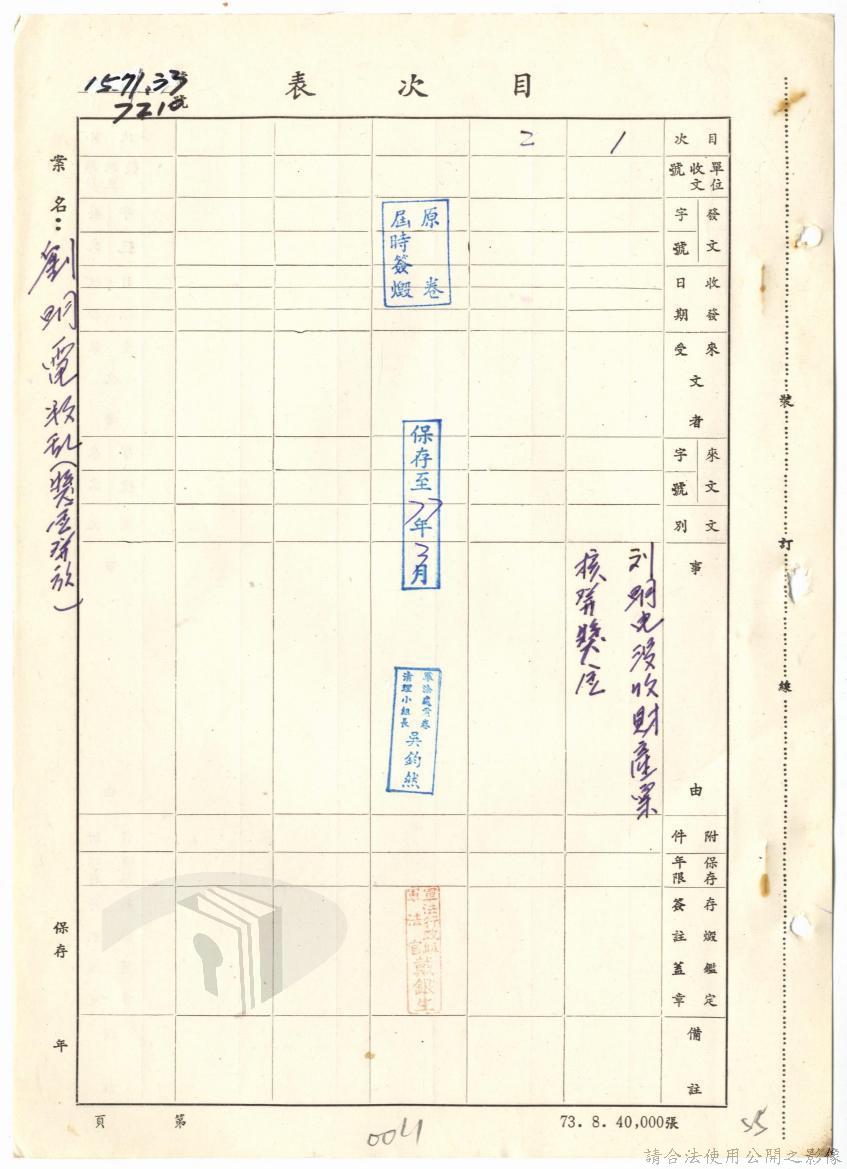 目次表
1571.33
7210號
案名：劉明電叛乱(獎金發放)
保存 年
目次
單位收文號
發文字號
收發日期
來受文者
來文字號
文別
事由
附件
保存年限
存燬鑑定簽註蓋章
備註
1
刘明电沒收財產案
核發獎金
2
原卷
屆時簽燬
保存至77年3月
軍法處
清理小組長
吳鈞然
軍法行政組
軍法官 戴銀生
裝訂線
第 頁
73. 8. 40,000張
004
55
請合法使用公開之影像